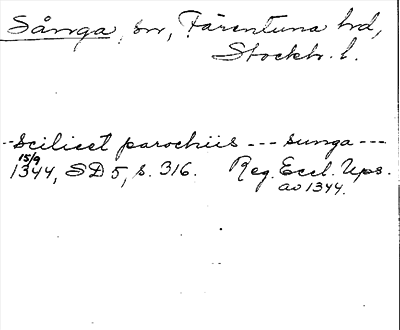 Sånga, sn, Färentuna hd,
Stockh. l.
--- scilicet parochiis --- sunga ---
15/9
1344, SD 5, s. 316. Reg. Eccl. Ups.
av 1344.